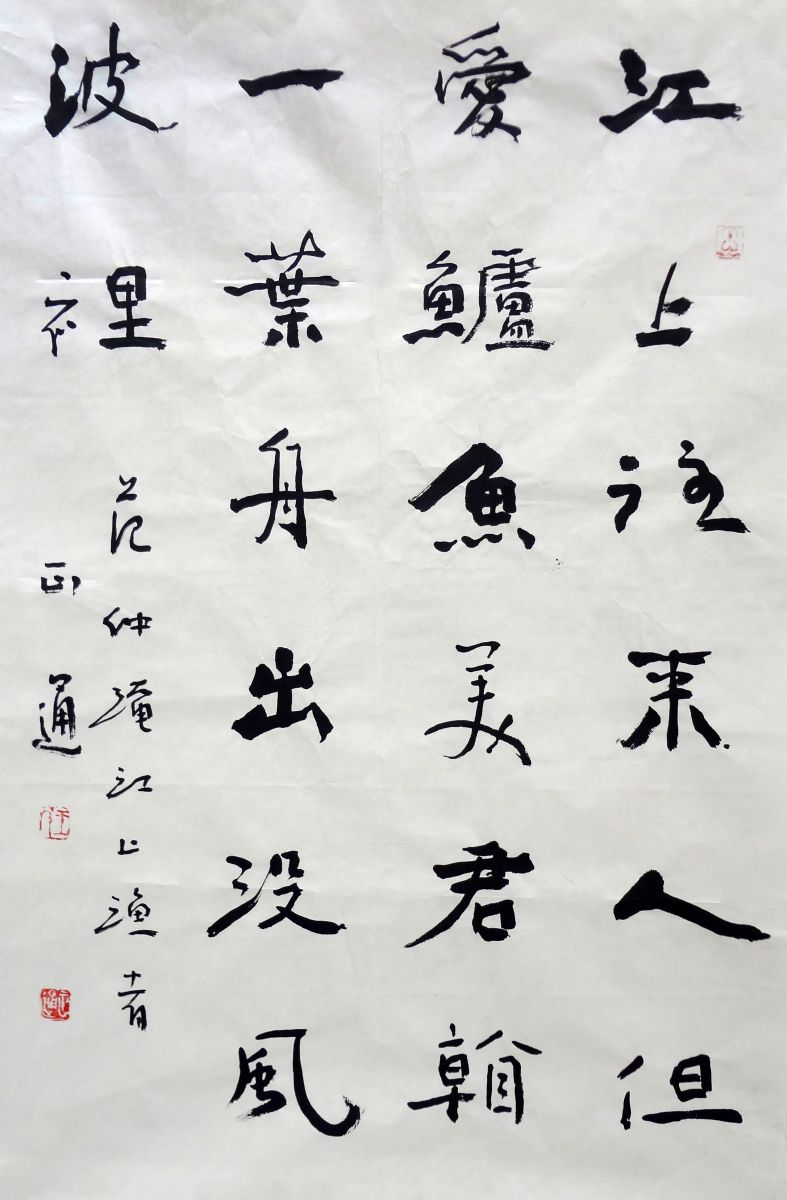 江上往来人但
愛鱸魚美君看
一葉舟出没風
波裡
范仲淹江上漁者
正通